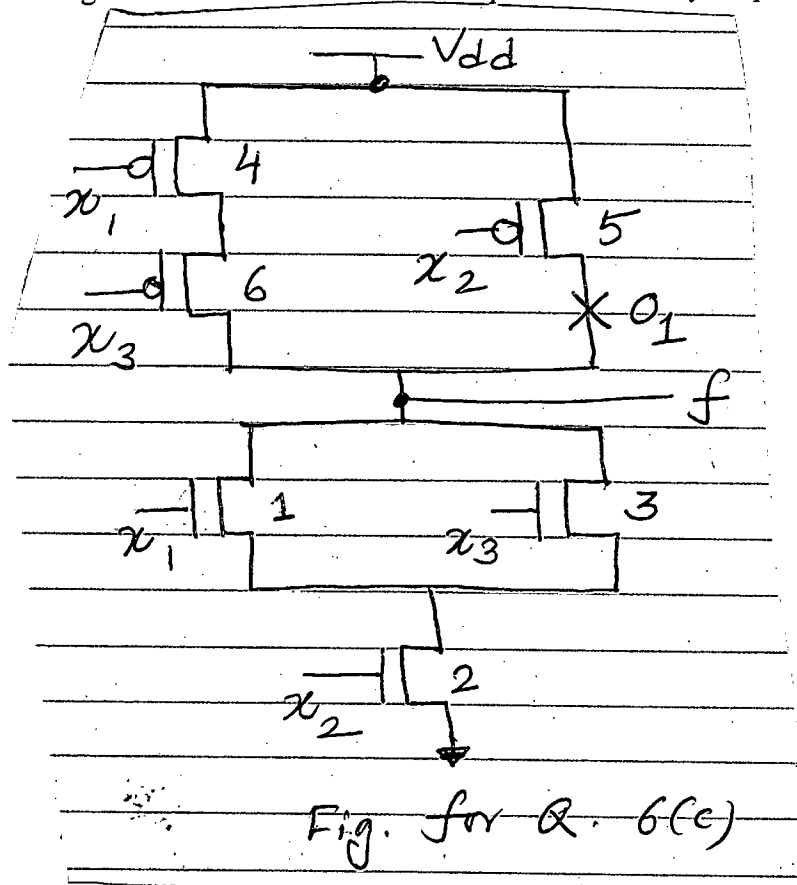 Vdd
4
x1
5
x2
6
x3
O1
f
1
x1
3
x3
2
x2
Fig. for Q. 6(c)